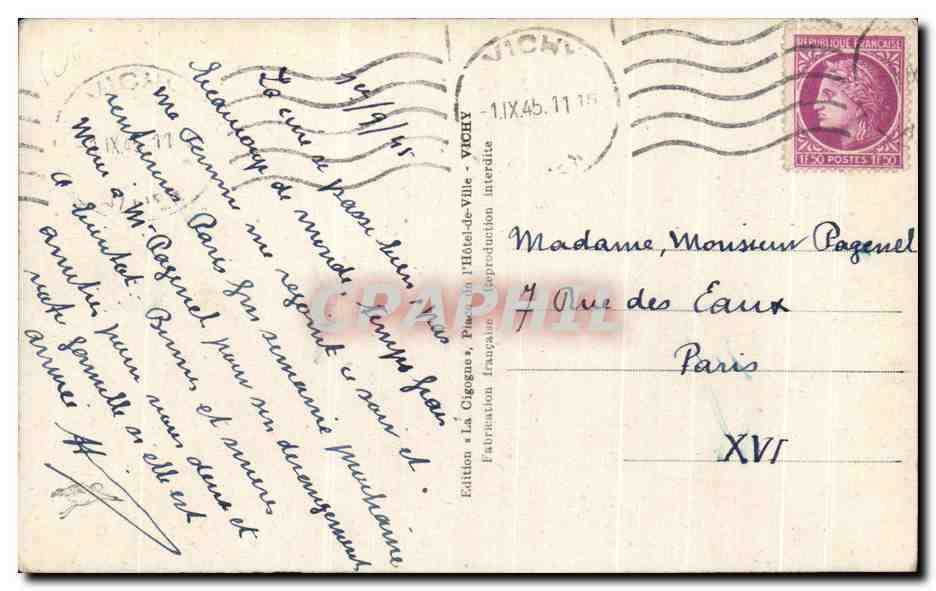 VICHY
-1.IX.45.11 15
REPUBLIQUE FRANÇAISE
1F.50 POSTES 1F.50
VICHY
IX 45 11
1er/9/45
La cure se passe bien, pas
beaucoup de monde, temps frais
ma Femme me rejoint ce soir et
rentrerons Paris fin semaine prochaine
Merci à Mr Pagenel pour son dérangement
Bonnes et sincères
amitiés pour vous deux et
votre famille si elle est
arrivée
Edition « La Cigogne », Place de l'Hôtel-de-Ville - VICHY
Fabrication française Reproduction interdite
Madame, Monsieur Pagenel
7 Rue des Eaux
Paris
XVI
CPAPHIL